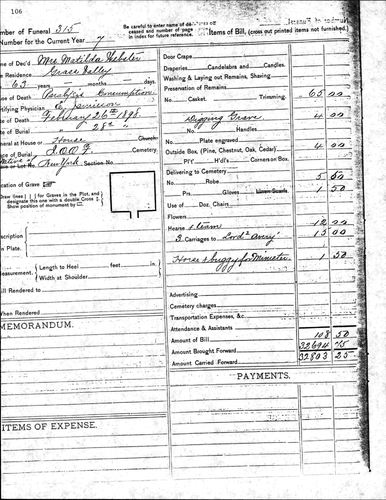 106
Number of Funeral 315
Number for the Current Year 7
Be careful to enter name of deceased and number of page in index for future reference.
Items of Bill, (cross out printed items not furnished.)
Name of Dec'd Mrs Matilda Webster
Residence Grass Valley
63 years months days
Cause of Death Paralysis Consumption
Certifying Physician E. Jamieson
Date of Death February 26th 1898
Date of Burial " 28th "
Funeral at House or House Church
Place of Burial I.O.O.F. Cemetery
Native of New York Section No.
Location of Grave
Draw lines for Graves in the Plot, and
designate this one with a double Cross
Show position of monument by
Inscription
on Plate.
Measurement,
Length to Heel feet in.
Width at Shoulder
Bill Rendered
When Rendered
MEMORANDUM.
ITEMS OF EXPENSE.
Door Crape
Draperies Candelabra and Candles.
Washing & Laying out Remains, Shaving
Preservation of Remains
No. Casket. Trimming. 65 00
Digging Grave 4 00
No. Handles
Plate engraved
Outside Box (Pine, Chestnut, Oak, Cedar). 4 00
Pl't' H'd's Corners on Box.
Delivering to Cemetery
No. Robe 5 00
Prs. Gloves 1 50
Use of Doz. Chair
Flowers
Hearse & team 12 00
3 Carriages to 15 00
Horse & buggy for Minister 1 50
Advertising
Cemetery charges
Transportation Expenses, &c.
Attendance & Assistants
Amount of Bill 108 50
Amount Brought Forward 32694 75
Amount Carried Forward 32803 25
PAYMENTS.